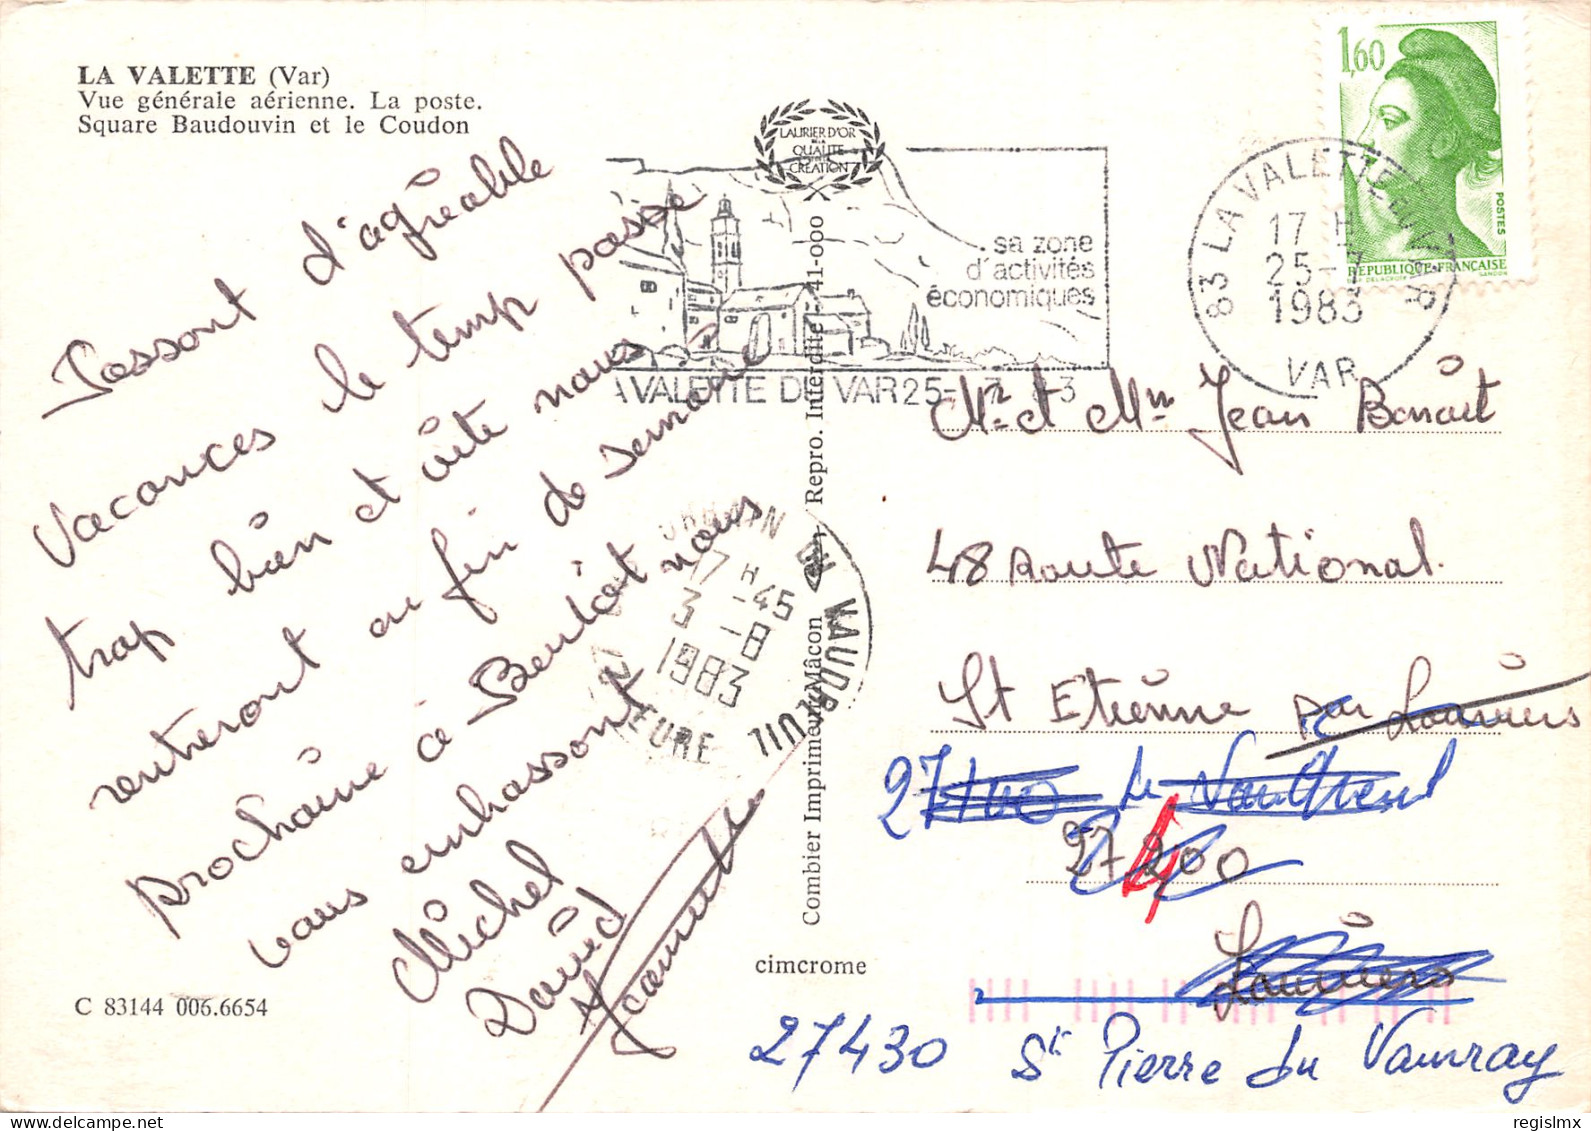 LA VALETTE (Var)
Vue générale aérienne. La poste.
Square Baudouvin et le Coudon
Passont d'agréable
vacances le temp passe
trop bien et vite nous
rentreront au fin de semaine
prochaine à Bentôt nous
vous embrassont
Michel
David
C 83144 006.6654
LAURIER D'OR
DE LA
QUALITE
CREATION
sa zone
d'activités
économiques
LA VALETTE DU VAR 25-7 83
Combier Imprimeur Mâcon Repro. Interdite 41-000
cimcrome
17 H 45
3 -8
1983
VAUDREUIL
EURE
1,60
POSTES
REPUBLIQUE FRANÇAISE
83 LA VALETTE DU VAR
17 H
25-7
1983
VAR
Mr et Mm Jean Benoit
48 route National.
St Etienne par Louviers
27100 Le Vaudreuil
27400
Louviers
27430 St Pierre du Vauvray
regislmx